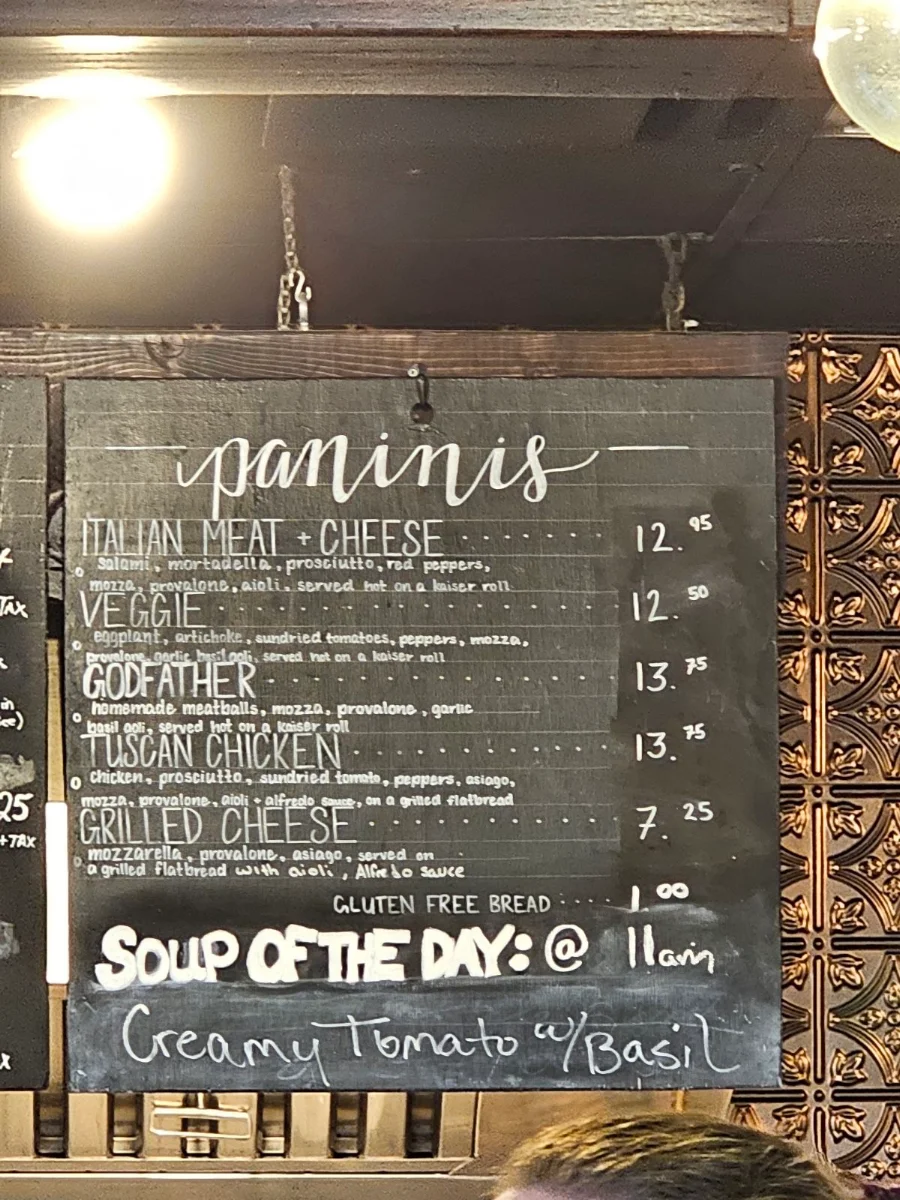 paninis
ITALIAN MEAT + CHEESE ........ 12.95
salami, mortadella, prosciutto, red peppers,
mozza, provalone, aioli, served hot on a kaiser roll
VEGGIE ........ 12.50
eggplant, artichoke, sundried tomatoes, peppers, mozza,
provalone, garlic basil aoli, served hot on a kaiser roll
GODFATHER ........ 13.75
homemade meatballs, mozza, provalone, garlic
basil aoli, served hot on a kaiser roll
TUSCAN CHICKEN ........ 13.75
chicken, prosciutto, sundried tomato, peppers, asiago,
mozza, provalone, aioli + alfredo sauce, on a grilled flatbread
GRILLED CHEESE ........ 7.25
mozzarella, provalone, asiago, served on
a grilled flatbread with aioli, Alfredo sauce
GLUTEN FREE BREAD ..... 1.00
SOUP OF THE DAY: @ 11am
Creamy Tomato w/Basil
TAX
25
+TAX